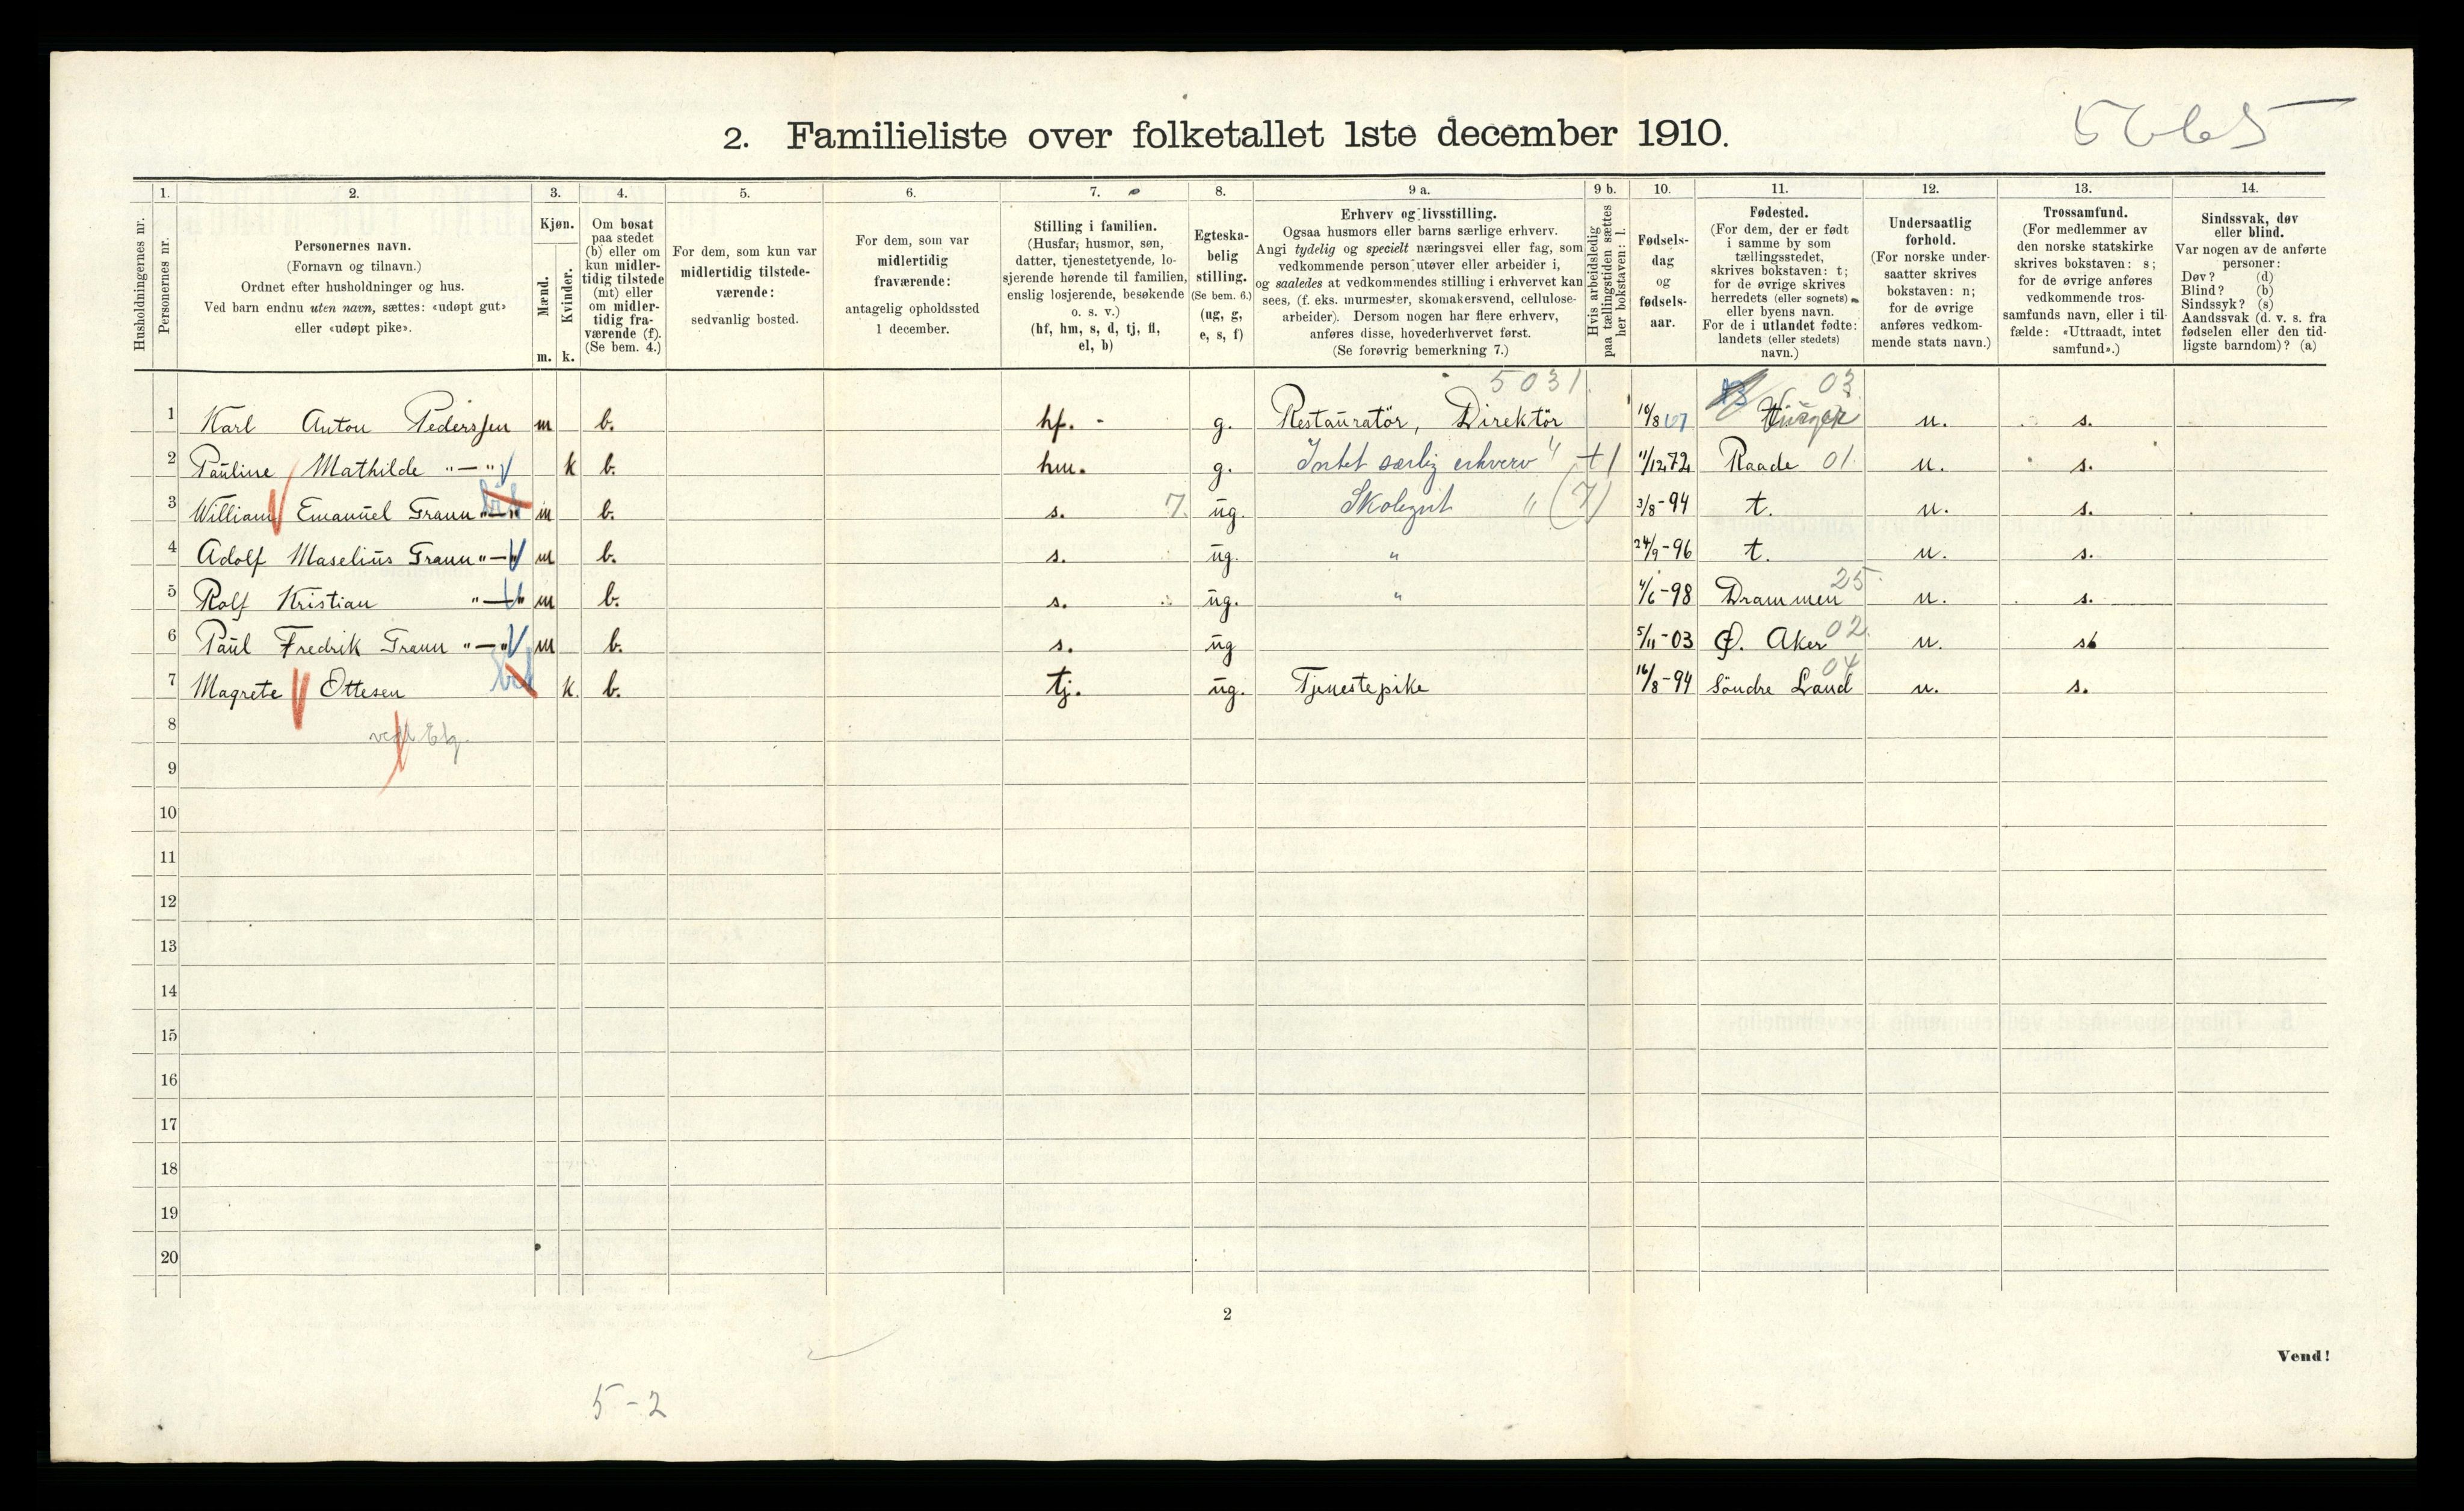 5665
2. Familieliste over folketallet 1ste december 1910.
Husholdningernes nr.
1. Personernes nr.
2. Personernes navn.
(Fornavn og tilnavn.)
Ordnet efter husholdninger og hus.
Ved barn endnu uten navn, sættes: «udøpt gut»
eller «udøpt pike».
3. Kjøn.
Mænd. m.
Kvinder. k.
4. Om bosat
paa stedet
(b) eller om
kun midler-
tidig tilstede
(mt) eller
om midler-
tidig fra-
værende (f).
(Se bem. 4.)
5. For dem, som kun var
midlertidig tilstede-
værende:
sedvanlig bosted.
6. For dem, som var
midlertidig
fraværende:
antagelig opholdssted
1 december.
7. Stilling i familien.
(Husfar, husmor, søn,
datter, tjenestetyende, lo-
sjerende hørende til familien,
enslig losjerende, besøkende
o. s. v.)
(hf, hm, s, d, tj, fl,
el, b)
8. Egteska-
belig
stilling.
(Se bem. 6.)
(ug, g,
e, s, f)
9 a. Erhverv og livsstilling.
Ogsaa husmors eller barns særlige erhverv.
Angi tydelig og specielt næringsvei eller fag, som
vedkommende person utøver eller arbeider i,
og saaledes at vedkommendes stilling i erhvervet kan
sees, (f. eks. murmester, skomakersvend, cellulose-
arbeider). Dersom nogen har flere erhverv,
anføres disse, hovederhvervet først.
(Se forøvrig bemerkning 7.)
9 b. Hvis arbeidsledig
paa tællingstiden sættes
her bokstaven: l.
10. Fødsels-
dag
og
fødsels-
aar.
11. Fødested.
(For dem, der er født
i samme by som
tællingsstedet,
skrives bokstaven: t;
for de øvrige skrives
herredets (eller sognets)
eller byens navn.
For de i utlandet fødte:
landets (eller stedets)
navn.)
12. Undersaatlig
forhold.
(For norske under-
saatter skrives
bokstaven: n;
for de øvrige
anføres vedkom-
mende stats navn.)
13. Trossamfund.
(For medlemmer av
den norske statskirke
skrives bokstaven: s;
for de øvrige anføres
vedkommende tros-
samfunds navn, eller i til-
fælde: «Uttraadt, intet
samfund».)
14. Sindssvak, døv
eller blind.
Var nogen av de anførte
personer:
Døv? (d)
Blind? (b)
Sindssyk? (s)
Aandssvak (d. v. s. fra
fødselen eller den tid-
ligste barndom)? (a)
5031 03
1 Karl Anton Pederssen m b. hf. g. Restauratör, Direktör 10/8 67 n. s.
2 Pauline Mathilde "—" k b. hm. g. Intet særlig erhverv " t 1 11/12 72 Raade 01 n. s.
3 William Emanuel Grann "—" m b. s. 7. ug. Skolegut " (7) 3/8-94 t. n. s.
4 Adolf Maselius Grann "—" m b. s. ug. " 24/9-96 t. n. s.
5 Rolf Kristian "—" m b. s. ug. " 4/6-98 Drammen 25 n. s.
6 Paul Fredrik Grann "—" m b. s. ug 5/11-03 Ø. Aker 02 n. s
7 Magrete Ottesen k. b. tj. ug. Tjenestepike 16/8-94 Söndre Land 04 n. s.
8
9
10
11
12
13
14
15
16
17
18
19
20
2
Vend!
5-2